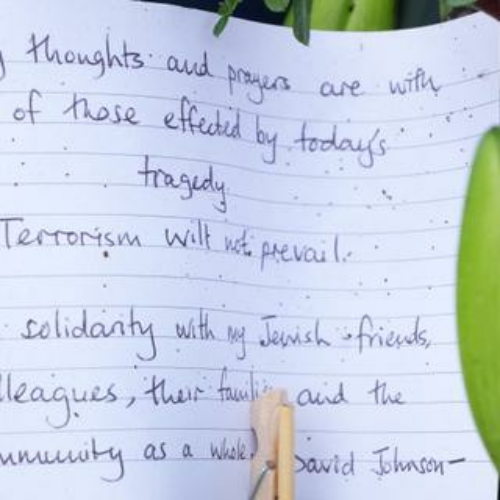 thoughts and prayers are with
of those effected by today's
tragedy
Terrorism will not prevail.
solidarity with my Jewish friends,
lleagues, their families and the
mmunity as a whole. David Johnson-